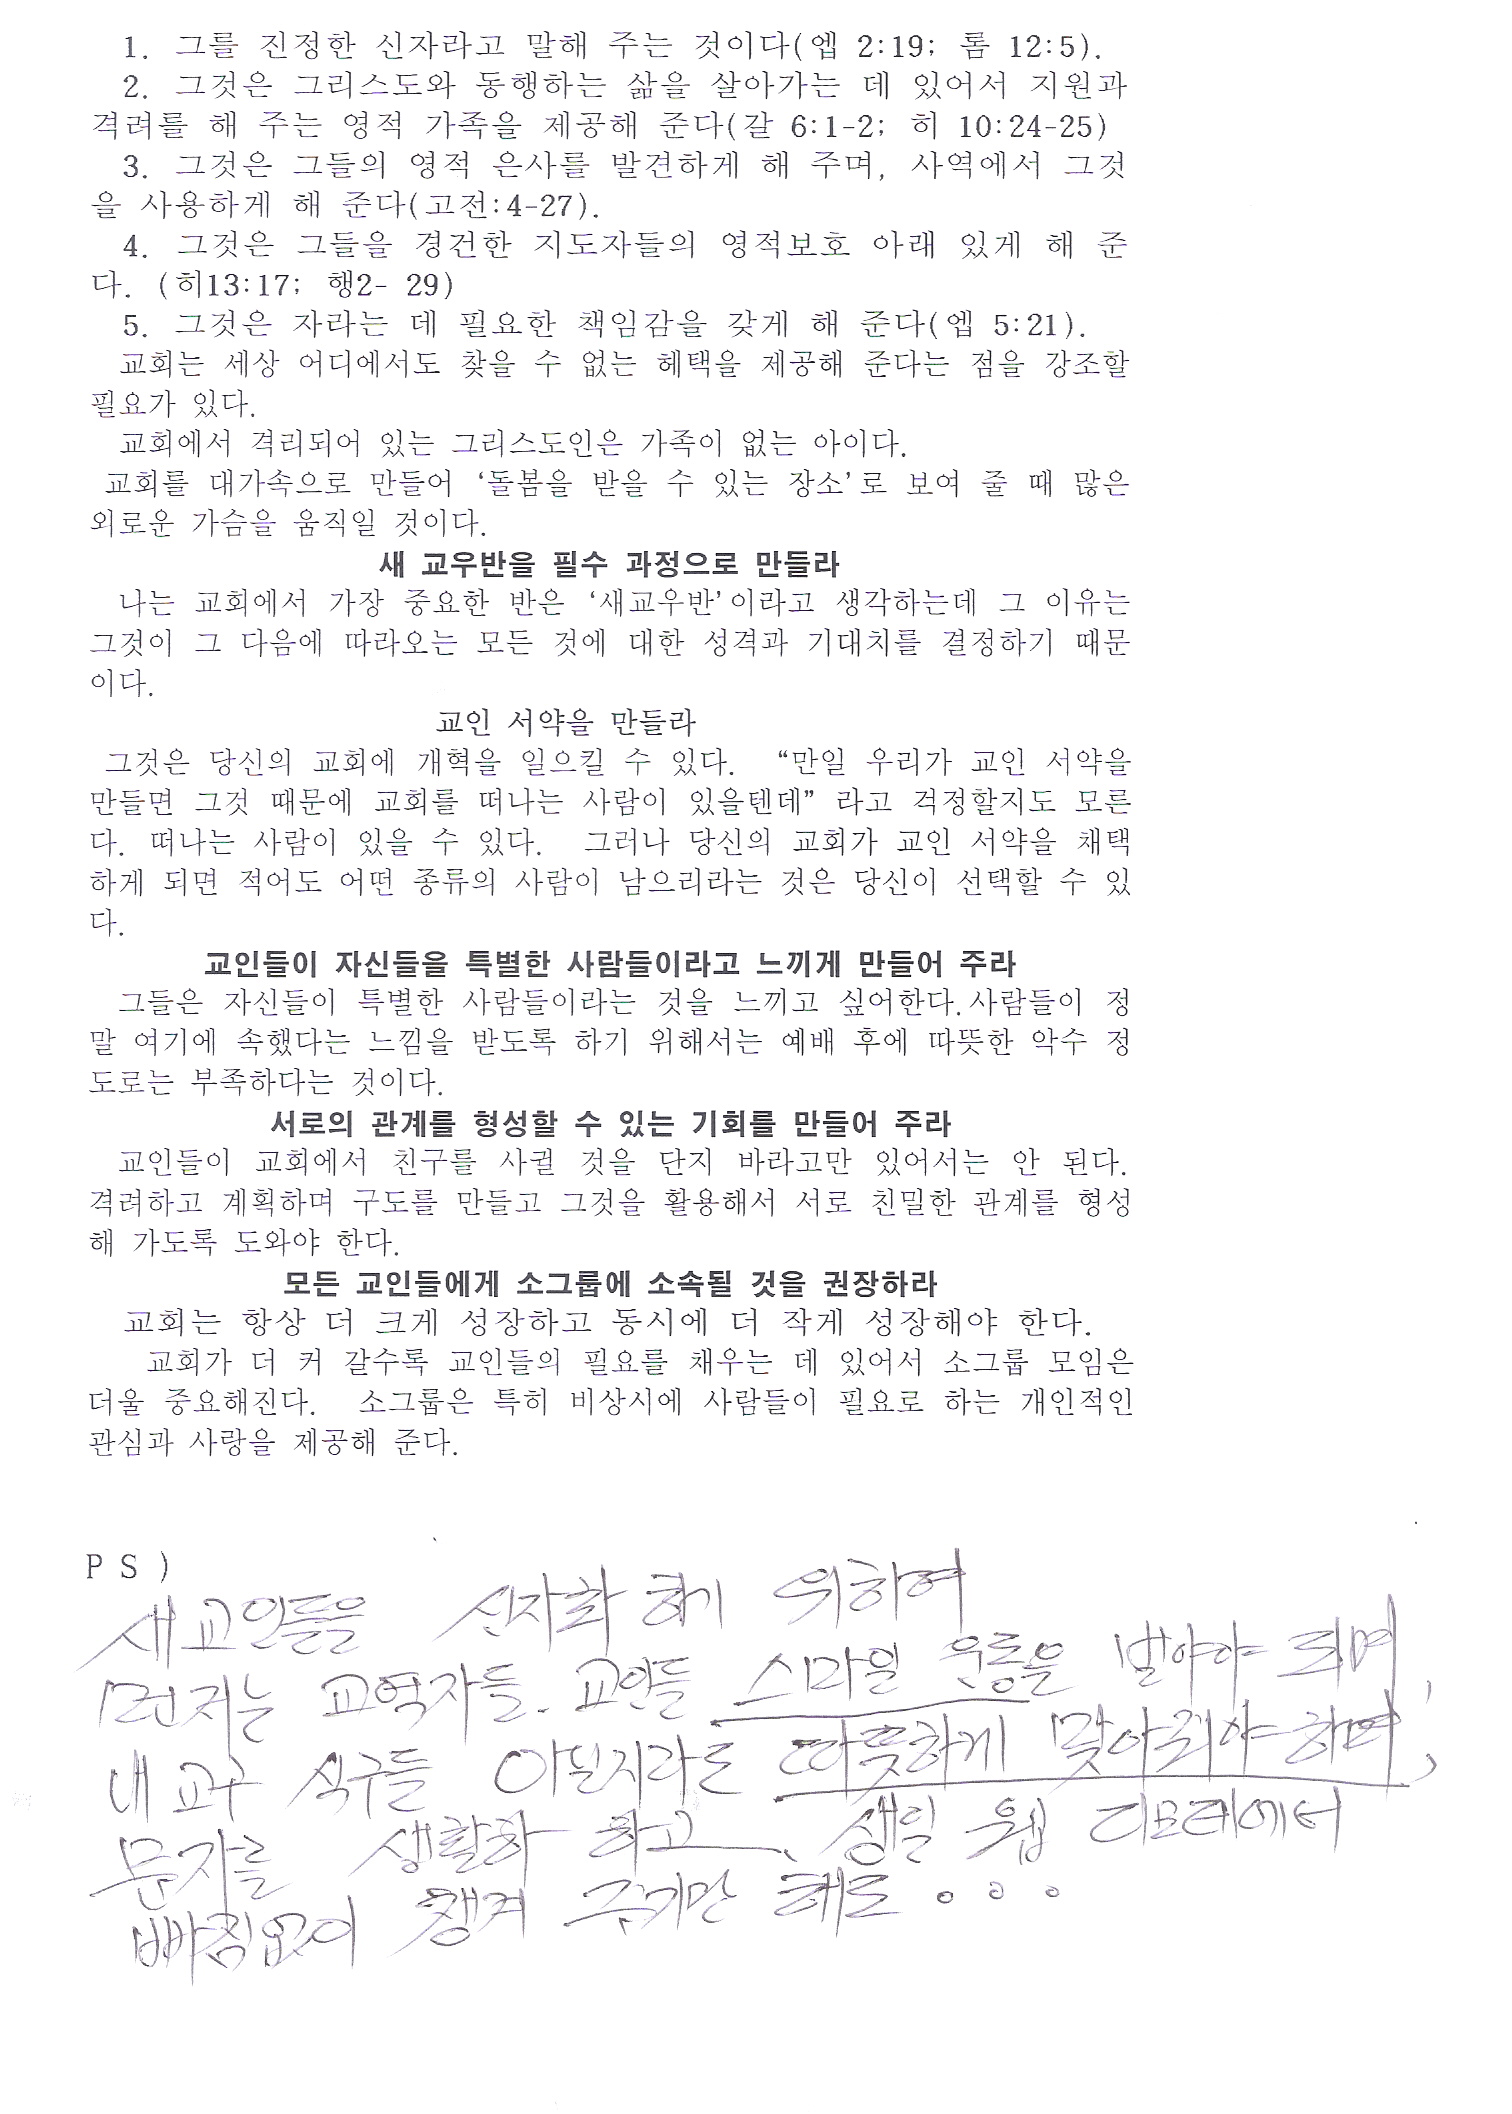 1. 그를 진정한 신자라고 말해 주는 것이다(엡 2:19; 롬 12:5).
2. 그것은 그리스도와 동행하는 삶을 살아가는 데 있어서 지원과
격려를 해 주는 영적 가족을 제공해 준다(갈 6:1-2; 히 10:24-25)
3. 그것은 그들의 영적 은사를 발견하게 해 주며, 사역에서 그것
을 사용하게 해 준다(고전:4-27).
4. 그것은 그들을 경건한 지도자들의 영적보호 아래 있게 해 준
다. (히13:17; 행2- 29)
5. 그것은 자라는 데 필요한 책임감을 갖게 해 준다(엡 5:21).
교회는 세상 어디에서도 찾을 수 없는 혜택을 제공해 준다는 점을 강조할
필요가 있다.
교회에서 격리되어 있는 그리스도인은 가족이 없는 아이다.
교회를 대가속으로 만들어 ‘돌봄을 받을 수 있는 장소’로 보여 줄 때 많은
외로운 가슴을 움직일 것이다.
새 교우반을 필수 과정으로 만들라
나는 교회에서 가장 중요한 반은 ‘새교우반’이라고 생각하는데 그 이유는
그것이 그 다음에 따라오는 모든 것에 대한 성격과 기대치를 결정하기 때문
이다.
교인 서약을 만들라
그것은 당신의 교회에 개혁을 일으킬 수 있다. “만일 우리가 교인 서약을
만들면 그것 때문에 교회를 떠나는 사람이 있을텐데” 라고 걱정할지도 모른
다. 떠나는 사람이 있을 수 있다. 그러나 당신의 교회가 교인 서약을 채택
하게 되면 적어도 어떤 종류의 사람이 남으리라는 것은 당신이 선택할 수 있
다.
교인들이 자신들을 특별한 사람들이라고 느끼게 만들어 주라
그들은 자신들이 특별한 사람들이라는 것을 느끼고 싶어한다.사람들이 정
말 여기에 속했다는 느낌을 받도록 하기 위해서는 예배 후에 따뜻한 악수 정
도로는 부족하다는 것이다.
서로의 관계를 형성할 수 있는 기회를 만들어 주라
교인들이 교회에서 친구를 사귈 것을 단지 바라고만 있어서는 안 된다.
격려하고 계획하며 구도를 만들고 그것을 활용해서 서로 친밀한 관계를 형성
해 가도록 도와야 한다.
모든 교인들에게 소그룹에 소속될 것을 권장하라
교회는 항상 더 크게 성장하고 동시에 더 작게 성장해야 한다.
교회가 더 커 갈수록 교인들의 필요를 채우는 데 있어서 소그룹 모임은
더울 중요해진다. 소그룹은 특히 비상시에 사람들이 필요로 하는 개인적인
관심과 사랑을 제공해 준다.
P S )
새교인들을 신자화 하기 위하여
먼저는 교역자들. 교인들 스마일 운동을 벌여야 되며,
내 교구 식구들 아닐지라도 따뜻하게 맞아줘야 하며,
문자를 생활화 하고, 생일 웹 디모데에서
빠짐없이 챙겨 주기만 해도...